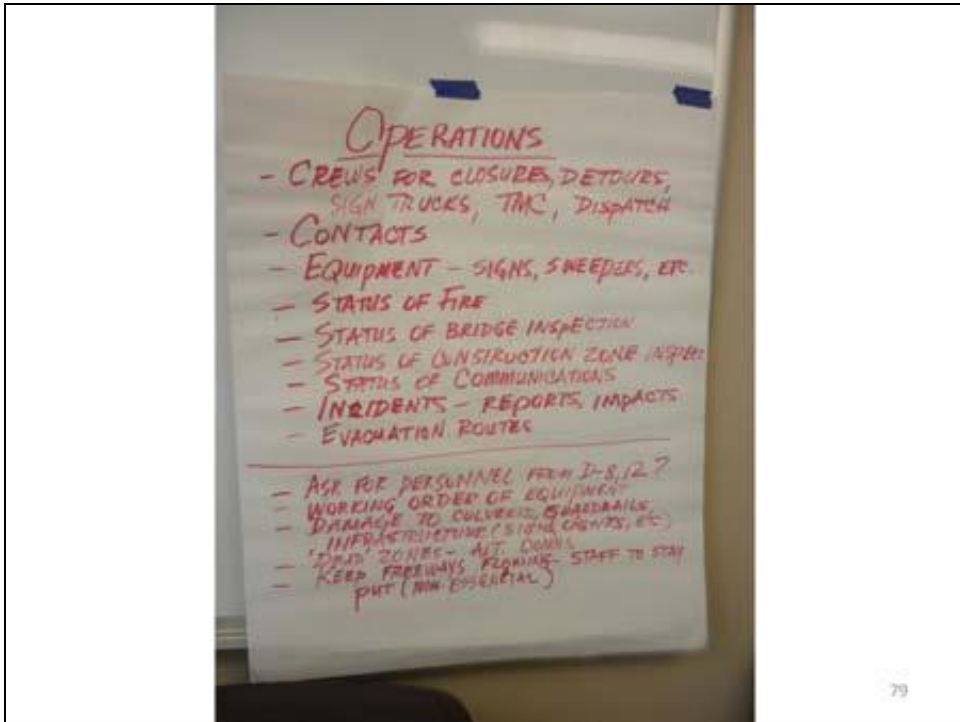 OPERATIONS
- CREWS FOR CLOSURES, DETOURS,
SIGN TRUCKS, TMC, DISPATCH
- CONTACTS
- EQUIPMENT - SIGNS, SWEEPERS, ETC.
- STATUS OF FIRE
- STATUS OF BRIDGE INSPECTION
- STATUS OF CONSTRUCTION ZONE INSPEC
- STATUS OF COMMUNICATIONS
- INCIDENTS - REPORTS, IMPACTS
- EVACUATION ROUTES
- ASK FOR PERSONNEL FROM D-8, 12?
- WORKING ORDER OF EQUIPMENT
- DAMAGE TO CULVERTS, GUARDRAILS,
INFRASTRUCTURE (SIGNS, LIGHTS, ETC)
- 'DEAD' ZONES - ALT. COMMS
- KEEP FREEWAYS FLOWING - STAFF TO STAY
PUT (NON-ESSENTIAL)
79